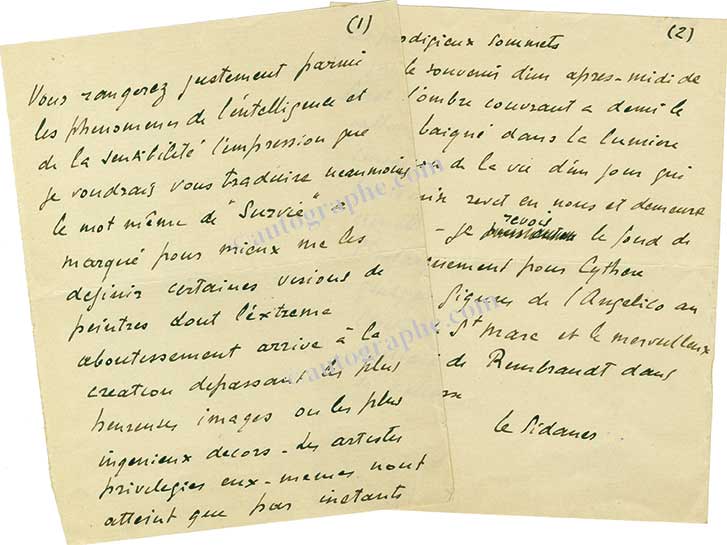 (1)
Vous rangerez justement parmi
les phenomenes de l'intelligence et
de la sensibilité l'impression que
je voudrais vous traduire neanmoins
le mot même de "Survie" a
marqué pour mieux me les
definir certaines visions de
peintres dont l'éxtreme
aboutissement arrive à la
creation depassant les plus
heureuses images ou les plus
ingenieux decors - Les artistes
privilegies eux-memes n'ont
atteint que par instants
(2)
odigieux sommets
le souvenir d'un apres-midi de
l'ombre couvrant a demi le
baigné dans la lumiere
de la vie d'un jour qui
revet en nous et demeure
- je revois le fond de
quement pour Cythere
figures de l'Angelico au
St Marc et le merveilleux
de Rembrandt dans
le Sidaner
©autographe.com
©autographe.com